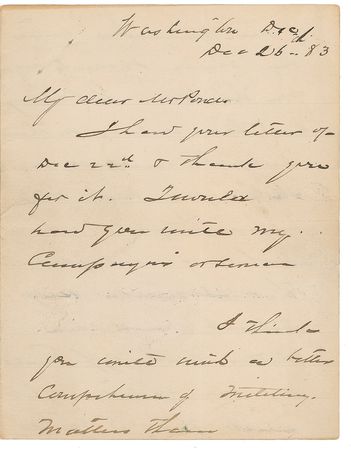 Washington D.C.
Dec 26 - 83
My dear
I have your letter of
Dec 22nd & thank you
for it. I would
have you write my
Campaigns
I think
you write with a better
Comprehension of Military
Matters than